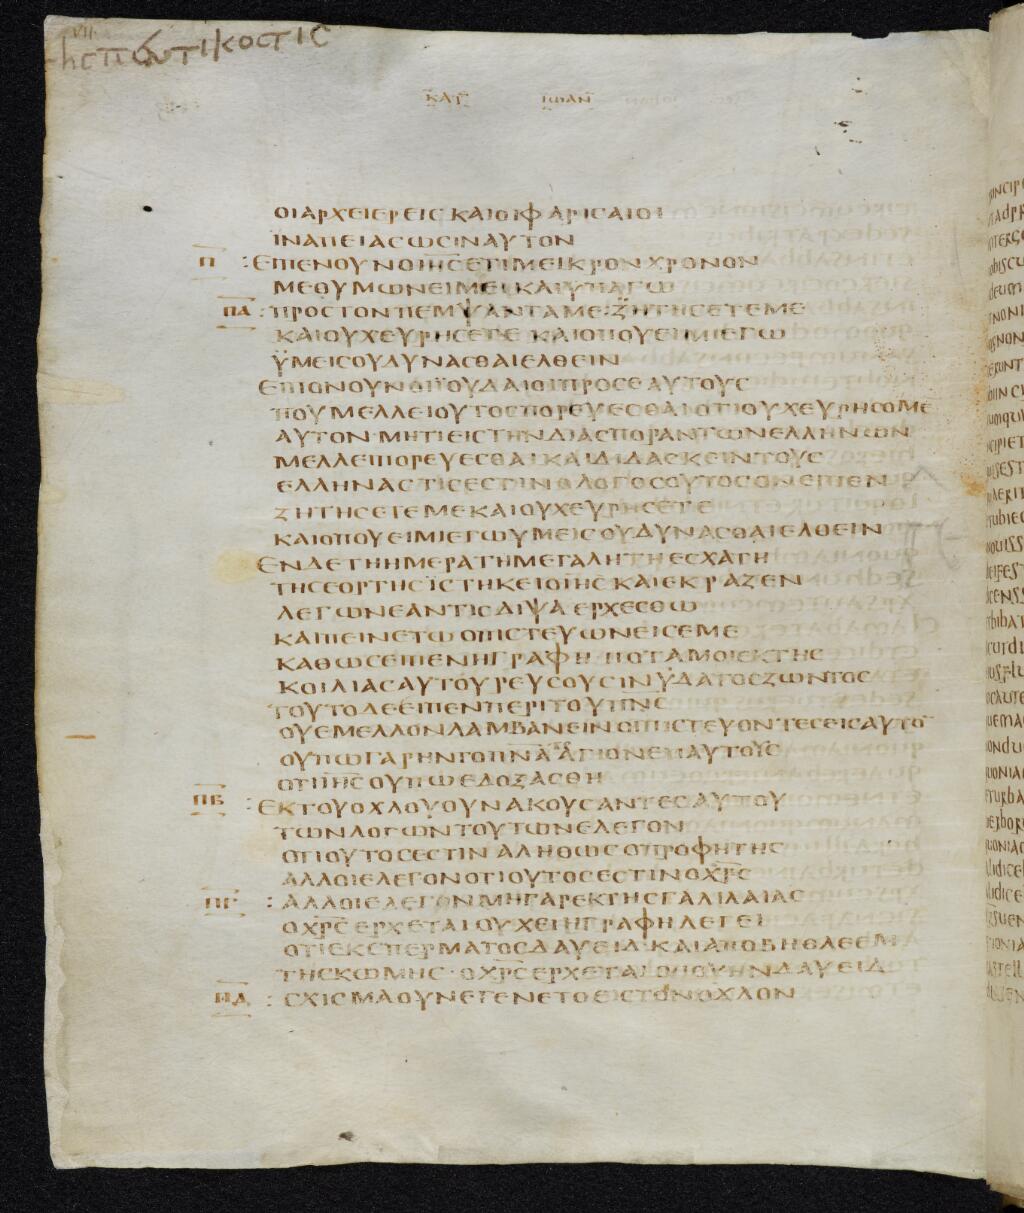 VII
ΚΑΤ ΙΩΑΝ
ΟΙΑΡΧΕΙΕΡΕΙΣ ΚΑΙΟΙΦΑΡΙΣΑΙΟΙ
ΪΝΑΠΕΙΑΣΩΣΙΝΑΥΤΟΝ
Π :ΕΙΠΕΝΟΥΝΟΙΗΣΕΤΙΜΕΙΚΡΟΝΧΡΟΝΟΝ
ΜΕΘΥΜΩΝΕΙΜΕΙ ΚΑΙΥΠΑΓΩ
ΠΑ :ΠΡΟΣΤΟΝΠΕΜΨΑΝΤΑΜΕ:ΖΗΤΗΣΕΤΕΜΕ
ΚΑΙΟΥΧΕΥΡΗΣΕΤΕ ΚΑΙΟΠΟΥΕΙΜΙΕΓΩ
ΫΜΕΙΣΟΥΔΥΝΑΣΘΑΙΕΛΘΕΙΝ
ΕΙΠΟΝΟΥΝΟΙΪΟΥΔΑΙΟΙΠΡΟΣΕΑΥΤΟΥΣ
ΠΟΥΜΕΛΛΕΙΟΥΤΟΣΠΟΡΕΥΕΣΘΑΙΟΤΙΟΥΧΕΥΡΗΣΟΜΕ
ΑΥΤΟΝ·ΜΗΤΙΕΙΣΤΗΝΔΙΑΣΠΟΡΑΝΤΩΝΕΛΛΗΝΩΝ
ΜΕΛΛΕΙΠΟΡΕΥΕΣΘΑΙ ΚΑΙΔΙΔΑΣΚΕΙΝΤΟΥΣ
ΕΛΛΗΝΑΣ ΤΙΣΕΣΤΙΝΟΛΟΓΟΣΟΥΤΟΣΟΝΕΙΠΕΝ
ΖΗΤΗΣΕΤΕΜΕΚΑΙΟΥΧΕΥΡΗΣΕΤΕ
ΚΑΙΟΠΟΥΕΙΜΙΕΓΩΥΜΕΙΣΟΥΔΥΝΑΣΘΑΙΕΛΘΕΙΝ
ΕΝΔΕΤΗΗΜΕΡΑΤΗΜΕΓΑΛΗΤΗΕΣΧΑΤΗ
ΤΗΣΕΟΡΤΗΣΪΣΤΗΚΕΙΟΙΗΣ ΚΑΙΕΚΡΑΖΕΝ
ΛΕΓΩΝΕΑΝΤΙΣΔΙΨΑ ΕΡΧΕΣΘΩ
ΚΑΙΠΕΙΝΕΤΩ ΟΠΙΣΤΕΥΩΝΕΙΣΕΜΕ
ΚΑΘΩΣΕΙΠΕΝΗΓΡΑΦΗ ΠΟΤΑΜΟΙΕΚΤΗΣ
ΚΟΙΛΙΑΣΑΥΤΟΥΡΕΥΣΟΥΣΙΝΫΔΑΤΟΣΖΩΝΤΟΣ
ΤΟΥΤΟΔΕΕΙΠΕΝΠΕΡΙΤΟΥΠΝΣ
ΟΥΕΜΕΛΛΟΝΛΑΜΒΑΝΕΙΝΟΙΠΙΣΤΕΥΟΝΤΕΣΕΙΣΑΥΤΟ
ΟΥΠΩΓΑΡΗΝΤΟΠΝΑΑΓΙΟΝΕΠΑΥΤΟΥΣ
ΟΤΙΙΗΣΟΥΠΩΕΔΟΞΑΣΘΗ
ΠΒ :ΕΚΤΟΥΟΧΛΟΥΟΥΝΑΚΟΥΣΑΝΤΕΣΑΥΤΟΥ
ΤΩΝΛΟΓΩΝΤΟΥΤΩΝΕΛΕΓΟΝ
ΟΤΙΟΥΤΟΣΕΣΤΙΝΑΛΗΘΩΣΟΠΡΟΦΗΤΗΣ
ΑΛΛΟΙΕΛΕΓΟΝΟΤΙΟΥΤΟΣΕΣΤΙΝΟΧΡΣ
ΠΓ :ΑΛΛΟΙΕΛΕΓΟΝΜΗΓΑΡΕΚΤΗΣΓΑΛΙΛΑΙΑΣ
ΟΧΡΣΕΡΧΕΤΑΙΟΥΧΕΙΗΓΡΑΦΗΛΕΓΕΙ
ΟΤΙΕΚΣΠΕΡΜΑΤΟΣΔΑΥΕΙΔ·ΚΑΙΑΠΟΒΗΘΛΕΕΜ
ΤΗΣΚΩΜΗΣ·ΟΧΡΣΕΡΧΕΤΑΙΟΠΟΥΗΝΔΑΥΕΙΔ
ΠΔ :ΣΧΙΣΜΑΟΥΝΕΓΕΝΕΤΟΕΙΣΤΟΝΟΧΛΟΝ